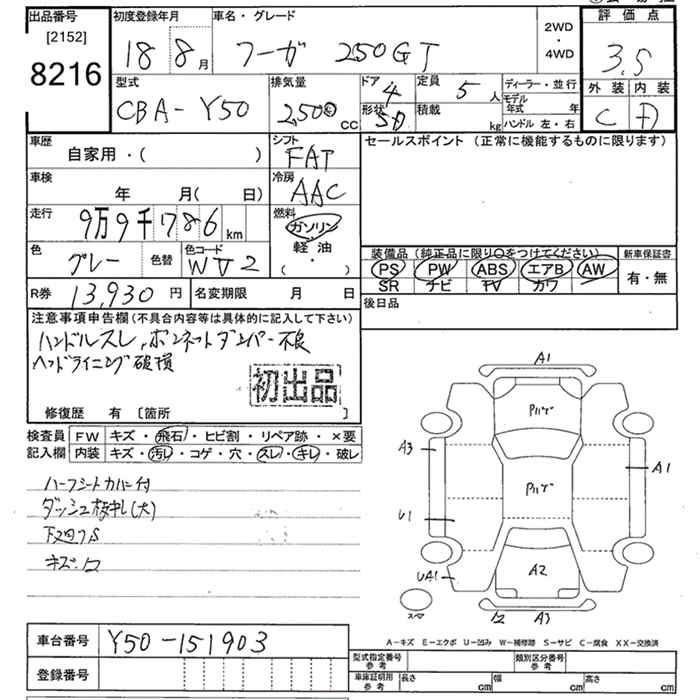 出品番号 初度登録年月 車名・グレード 2WD・4WD 評価点
[2152]
8216
18 8月 フーガ 250GT 3.5
型式 排気量 ドア 4 定員 5人 ディーラー・並行 外装 内装
CBA-Y50 2,500 cc 形状 SD 積載 kg モデル年式 年 C D
ハンドル 左・右
車歴 シフト セールスポイント (正常に機能するものに限ります)
自家用・( ) FAT
車検 冷房
年 月( 日) AAC
走行 燃料
9万9千786km ガソリン
軽油
( ・ )
色 グレー 色替 色コード WV2
装備品(純正品に限り○をつけてください) 新車保証書
PS PW ABS エアB AW 有・無
SR ナビ TV カワ
R券 13,930円 名変期限 月 日 後日品
注意事項申告欄(不具合内容等は具体的に記入して下さい)
ハンドルスレ、ボンネットダンパー不良
ヘッドライニング破損
初出品
修復歴 有 [箇所
検査員 FW キズ・飛石・ヒビ割・リペア跡・×要
記入欄 内装 キズ・汚レ・コゲ・穴・スレ・キレ・破レ
ハーフシートカバー付
ダッシュ板キレ(大)
下廻りS
A1
Pハゲ
A3
Pハゲ
A1
U1
A2
UA1
スペア
A3
A-キズ E-エクボ U-凹み W-補修跡 S-サビ C-腐食 XX-交換済
車台番号 Y50-151903
型式指定番号 参考 類別区分番号 参考
登録番号
車庫証明用 参考 長さ cm 幅 cm 高さ cm